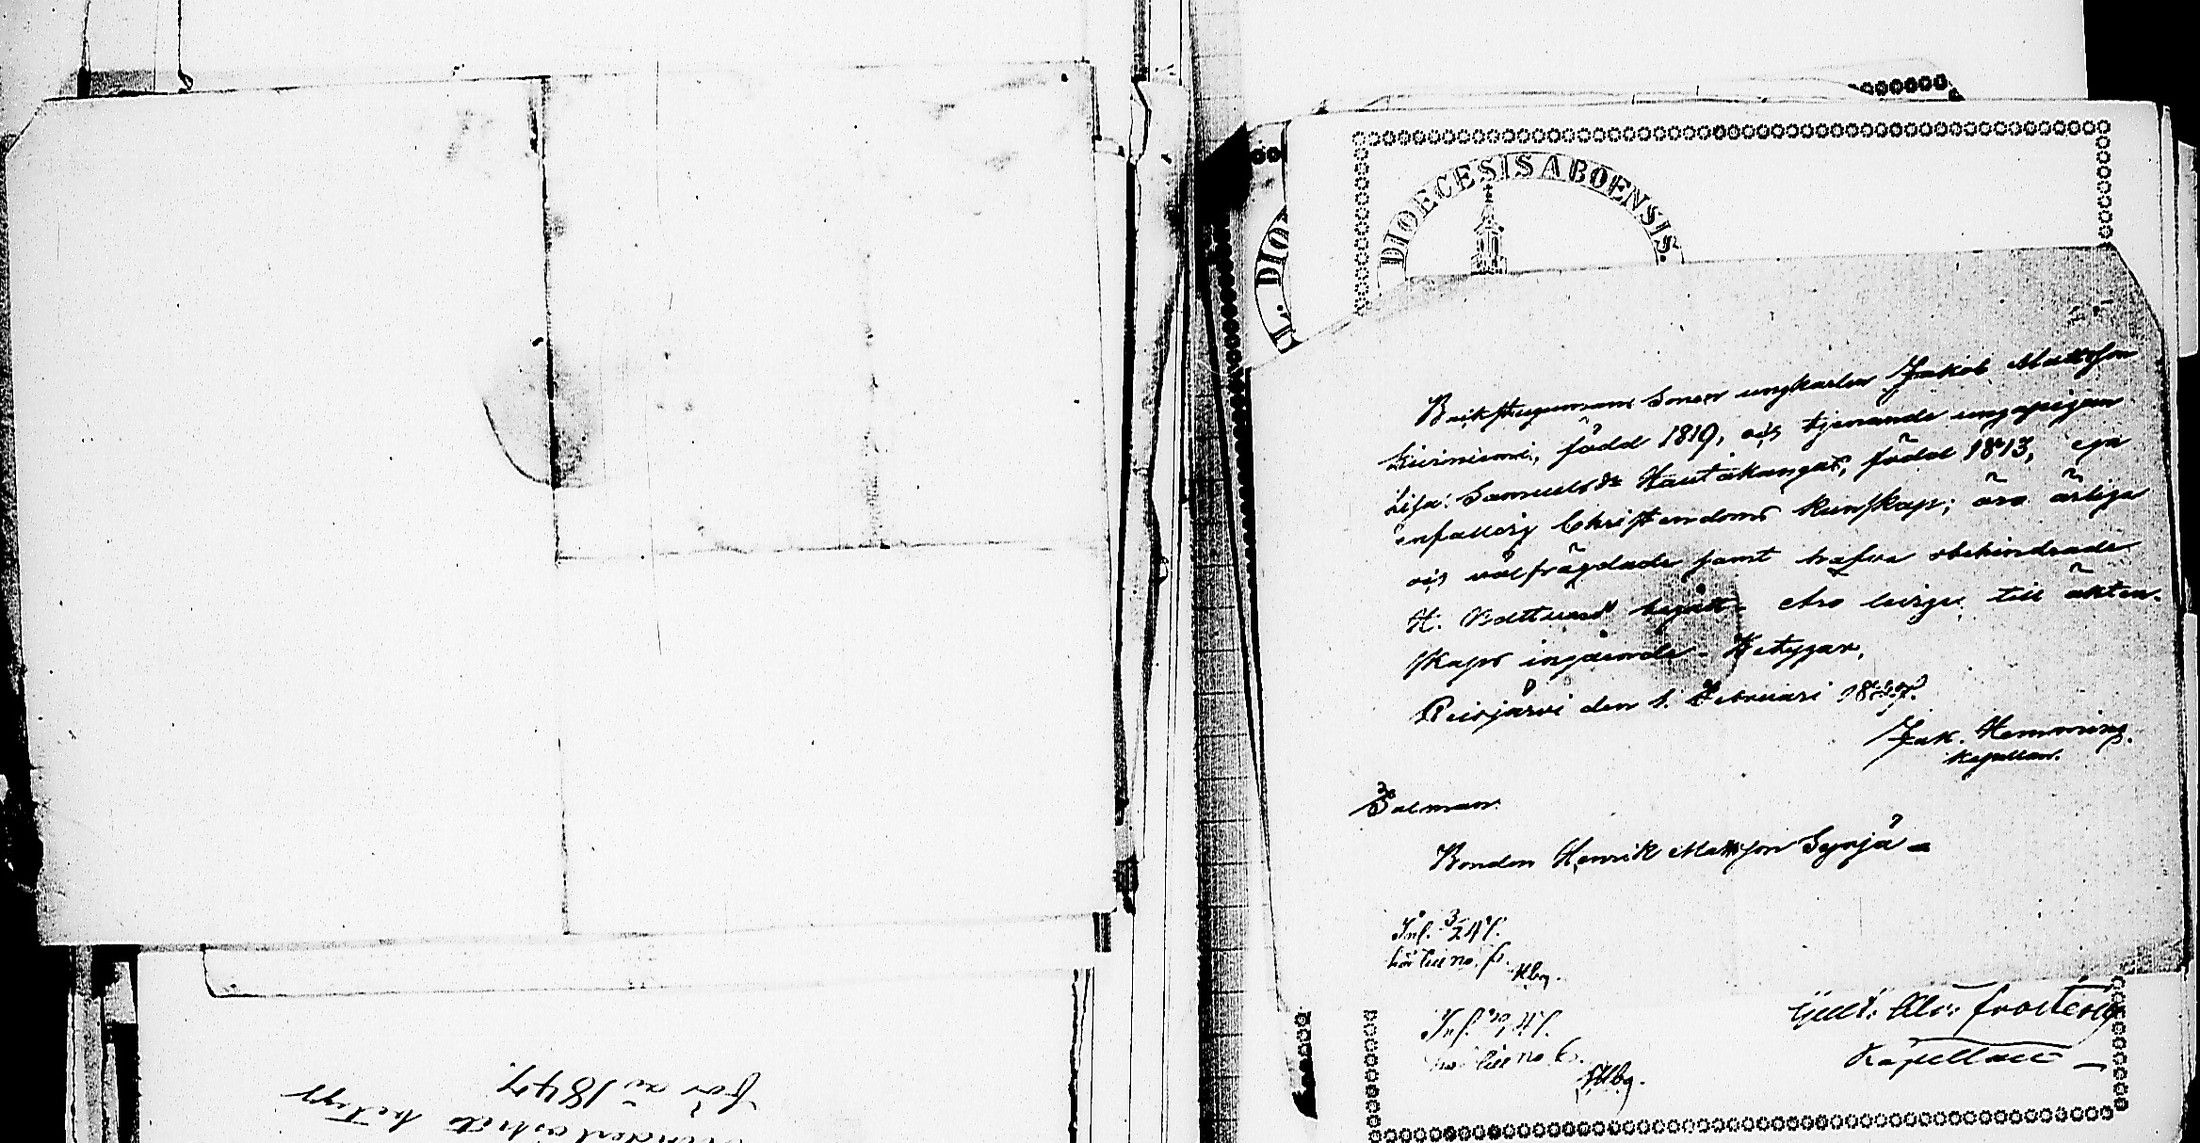 DIOECESIS ABOENSIS.
L. DIO
Backstugumans Sonen ungkarlen Jakob Mattsson
Kiiriniemi, född 1819, och tjenande ungapigan
Lisa Samuelsdr Hautakangas, född 1813, ega
enfaldig Christendoms kunskap; äro ärliga
och välfrägdade samt hafva obehindrade
H. Nattvard begått. Äro lediga till äkten-
skaps ingående. Betygar,
Reisjärvi den 1. Februari 1847.
Jak. Hemming.
kapellan.
Talman
Bonden Henrik Mattsson Syrjä
Inf. 3/2 47.
hör till no. 6.
Hbg.
Inf. 47.
till no. 6.
Hbg.
Kapellan
betyg
för år 1847.